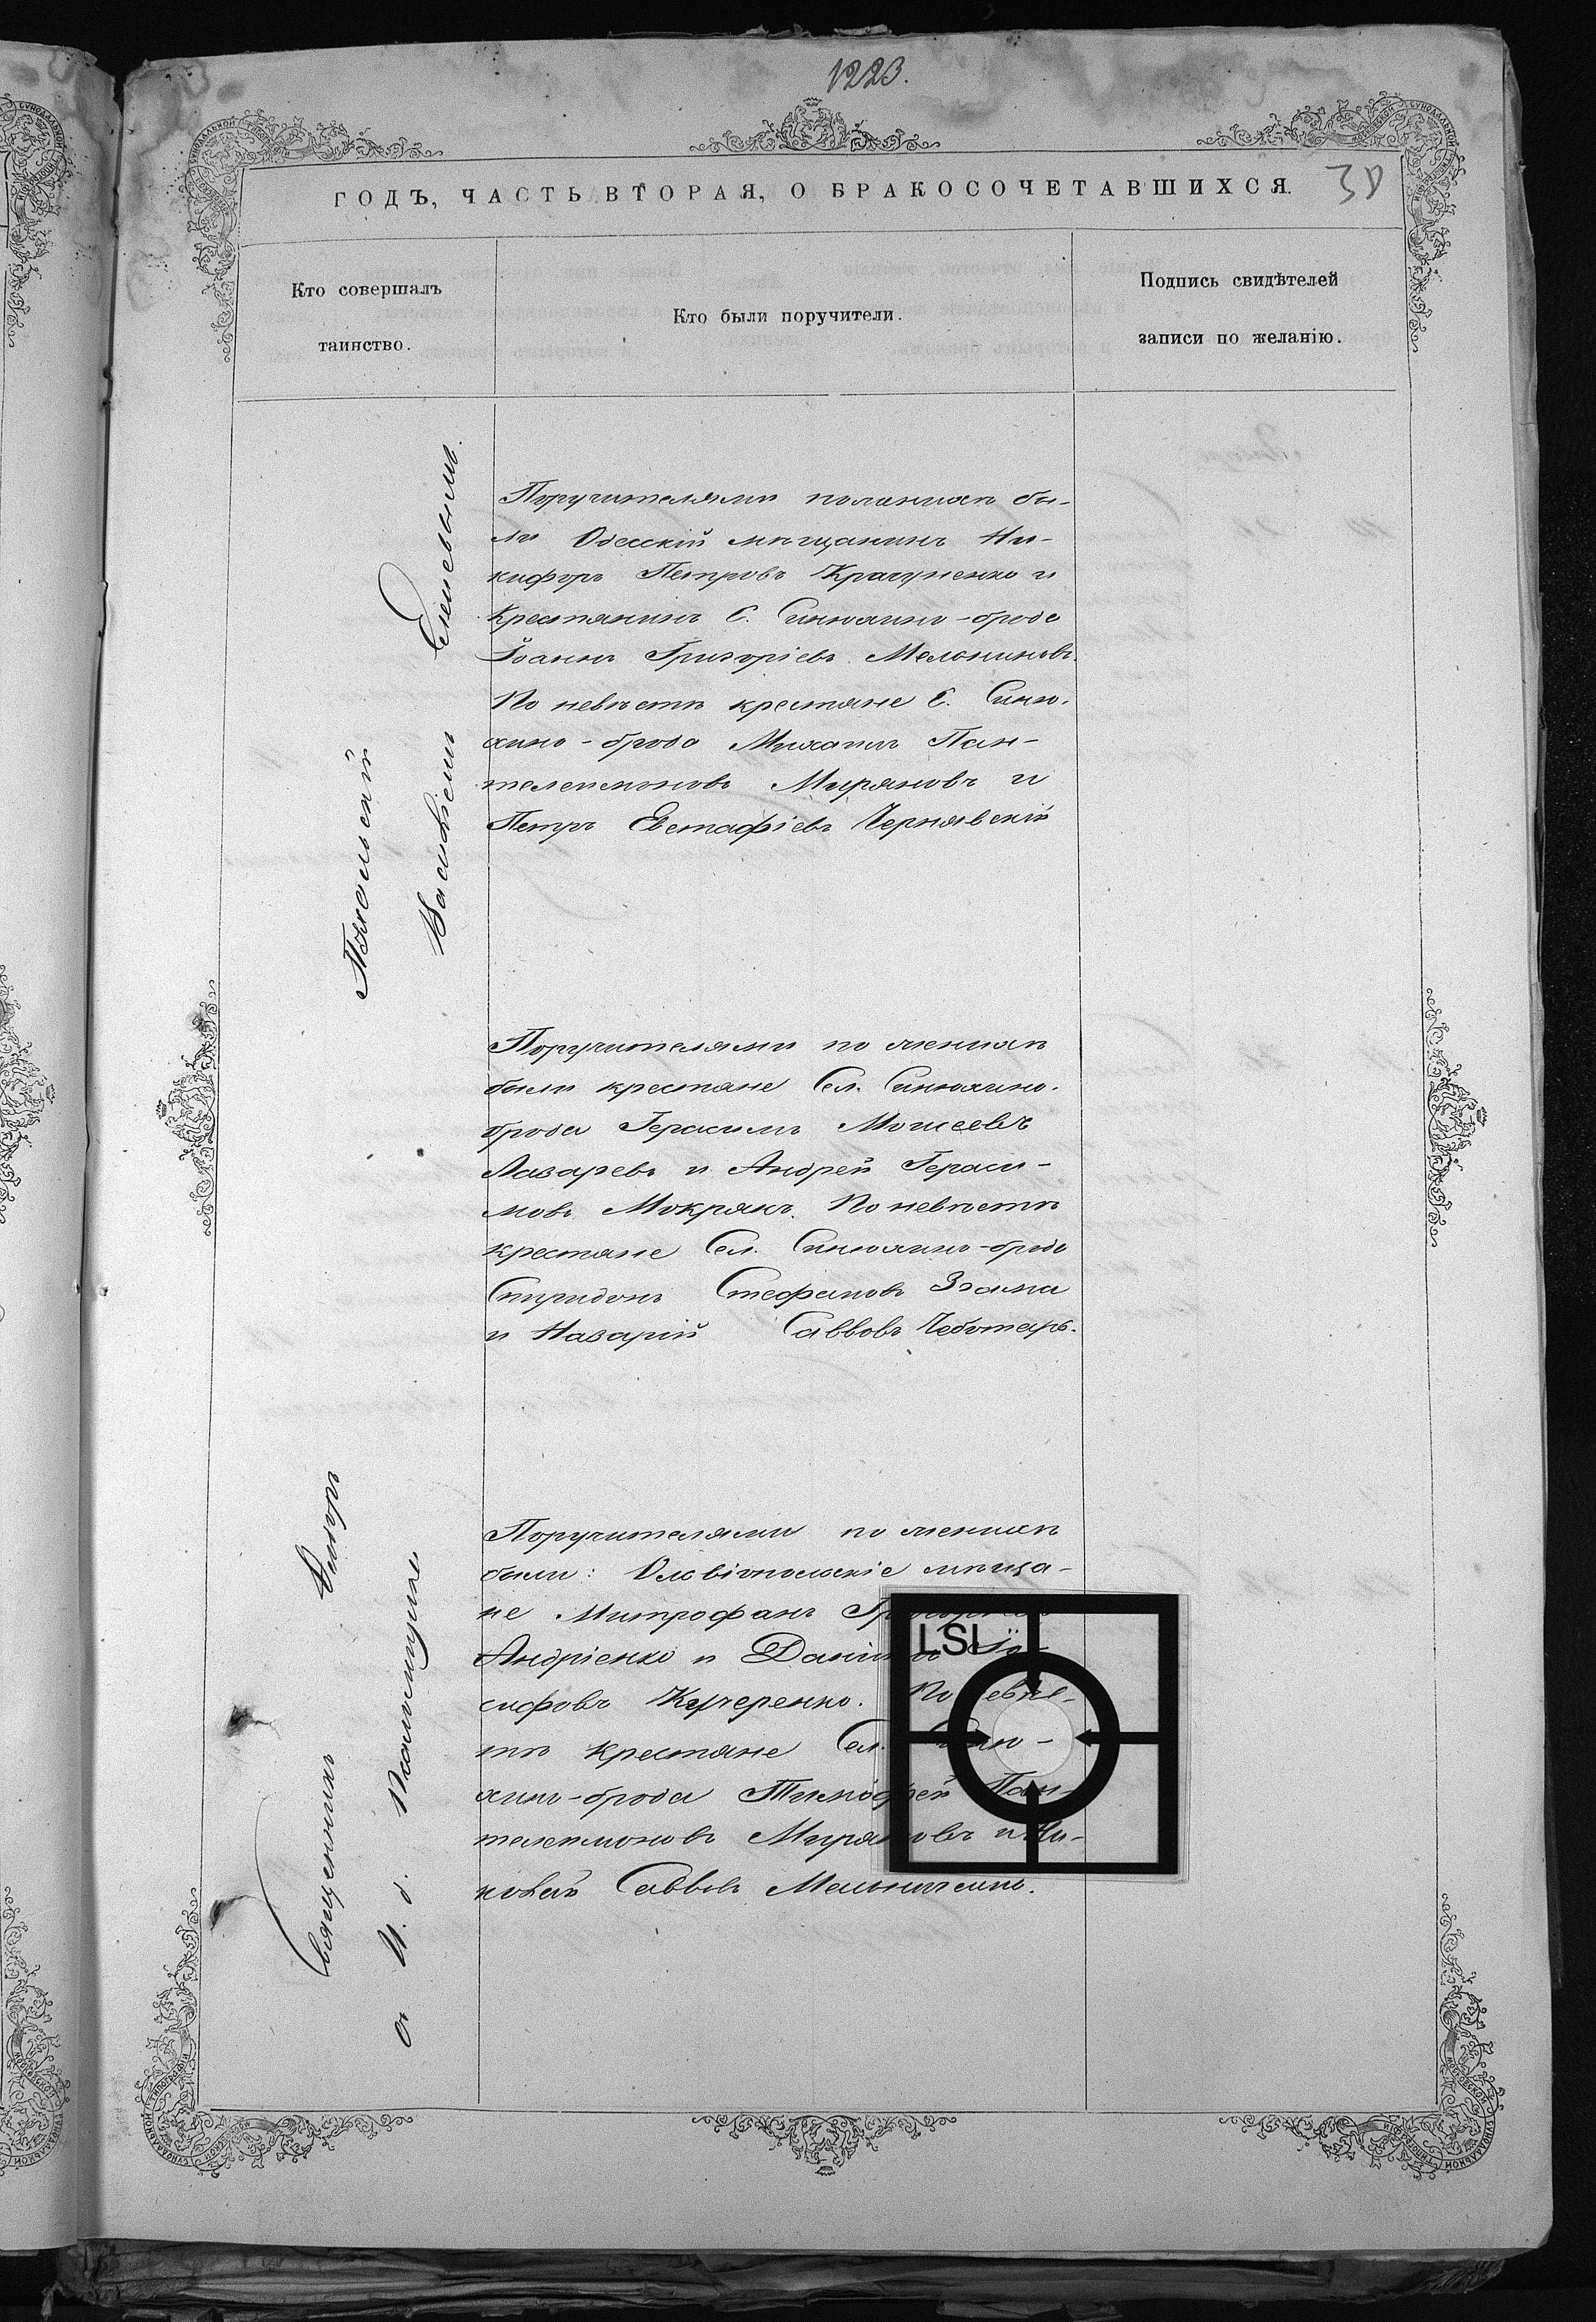 1223.
ГОДЪ, ЧАСТЬ ВТОРАЯ, О БРАКОСОЧЕТАВШИХСЯ.
30
Кто совершалъ
таинство.
Кто были поручители.
Подпись свидѣтелей
записи по желанію.
Священникъ
и И. д. Псаломщика
Поручителями по жениху бы-
ли Одесскій мѣщанинъ Ни-
кифоръ Петровъ Крагуненко и
Крестянинъ С. Синюхино-брода
Іоаннъ Григоріевъ Мельникъ.
По невѣстѣ крестяне С. Синю-
хино-брода Михаилъ Пан-
телеимоновъ Мирановъ и
Петръ Евстафіевъ Чернявскій
Поручителями по жениху
были крестяне Сел. Синюхино-
брода Герасимъ Моисеевъ
Лазаревъ и Андрей Гераси-
мовъ Мокрякъ. По невѣстѣ
крестяне Сел. Синюхино-брода
Спиридонъ Стефановъ
и Назарій Саввовъ Чеботарь.
Поручителями по жениху
были: Ольвіопольскіе мѣща-
не Митрофанъ
Андріенко и Даніилъ Іо-
сифовъ Кучеренко. По невѣс-
тѣ крестяне Сел. Синю-
хинъ-брода Тимофей Пан-
телеимоновъ Мирановъ и Ни-
колай Саввовъ Мельниченко.
LSI